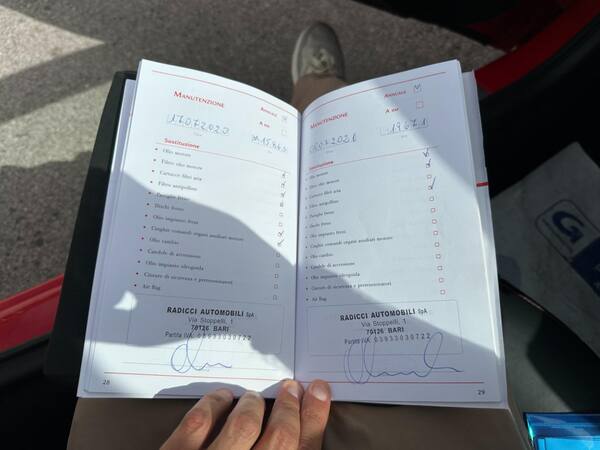 MANUTENZIONE
ANNUALE
A KM
Sostituzione
• Olio motore
• Filtro olio motore
• Cartucce filtri aria
• Filtro antipolline
• Pastiglie freno
• Dischi freno
• Olio impianto freni
• Cinghie comandi organi ausiliari motore
• Olio cambio
• Candele di accensione
• Olio impianto idroguida
• Cinture di sicurezza e pretensionatori
• Air Bag
RADICCI AUTOMOBILI SpA
Via Stoppelli, 1
70126 BARI
Partita IVA: 03933030722
28
MANUTENZIONE
ANNUALE
A KM
19671
Sostituzione
• Olio motore
• Filtro olio motore
• Cartucce filtri aria
• Filtro antipolline
• Pastiglie freno
• Dischi freno
• Olio impianto freni
• Cinghie comandi organi ausiliari motore
• Olio cambio
• Candele di accensione
• Olio impianto idroguida
• Cinture di sicurezza e pretensionatori
• Air Bag
RADICCI AUTOMOBILI SpA
Via Stoppelli, 1
70126 BARI
Partita IVA: 03933030722
29